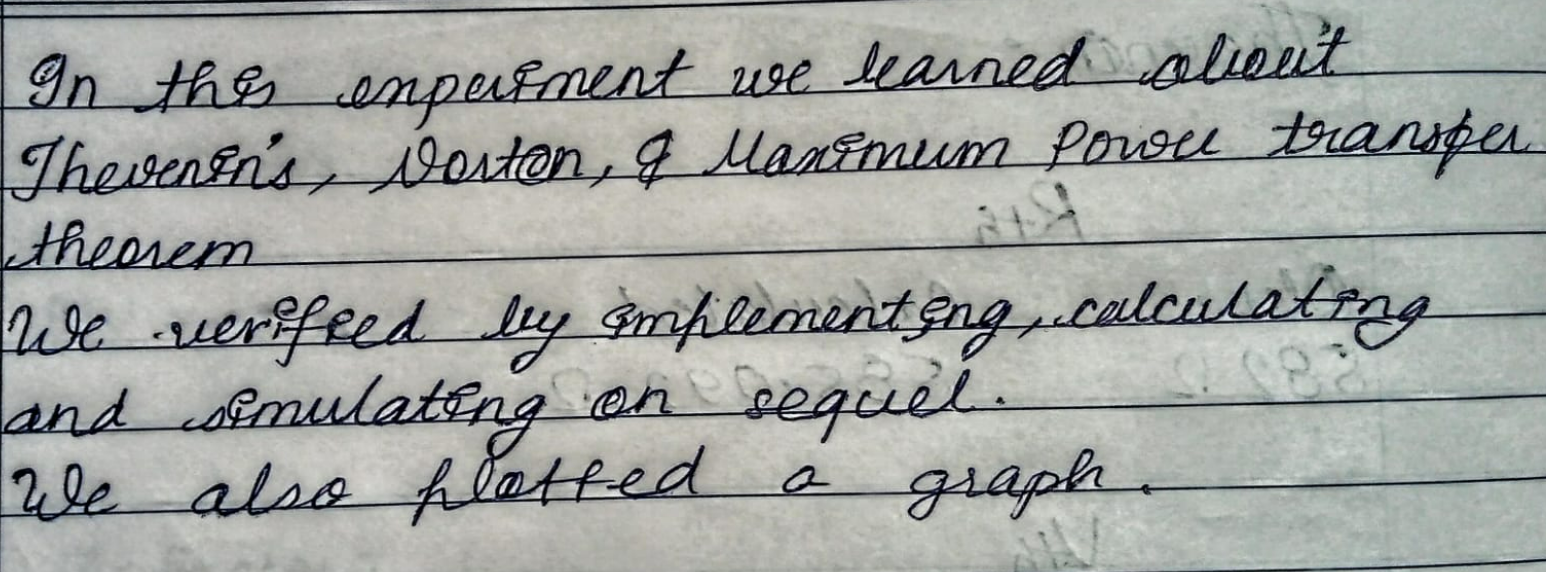 In this experiment we learned about
Thevenin's, Norton, & Maximum Power transfer
theorem
We verified by implementing, calculating
and simulating on sequel.
We also plotted a graph.